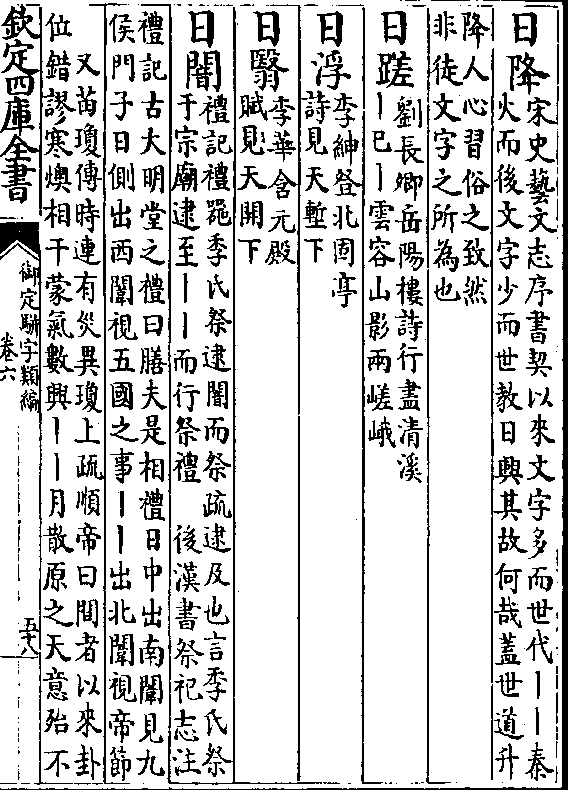 日降宋史藝文志序書契以來文字多而世代丨丨秦
火而後文字少而世教日興其故何哉蓋世道升
降人心習俗之致然
非徒文字之所為也
日蹉劉長卿岳陽樓詩行盡清溪
丨已丨雲容山影兩嵯峨
日浮李紳登北固亭
詩見天塹下
日翳李華含元殿
賦見天開下
日闇禮記禮器季氏祭逮闇而祭疏逮及也言季氏祭
于宗廟逮至丨丨而行祭禮 後漢書祭祀志注
禮記古大明堂之禮曰膳夫是相禮日中出南闈見九
侯門子日側出西闈視五國之事丨丨出北闈視帝節
又苖瓊傳時連有災異瓊上疏順帝曰間者以來卦
位錯謬寒燠相干蒙氣數興丨丨月散原之天意殆不
欽定四庫全書
御定駢字類編
卷六
五十八